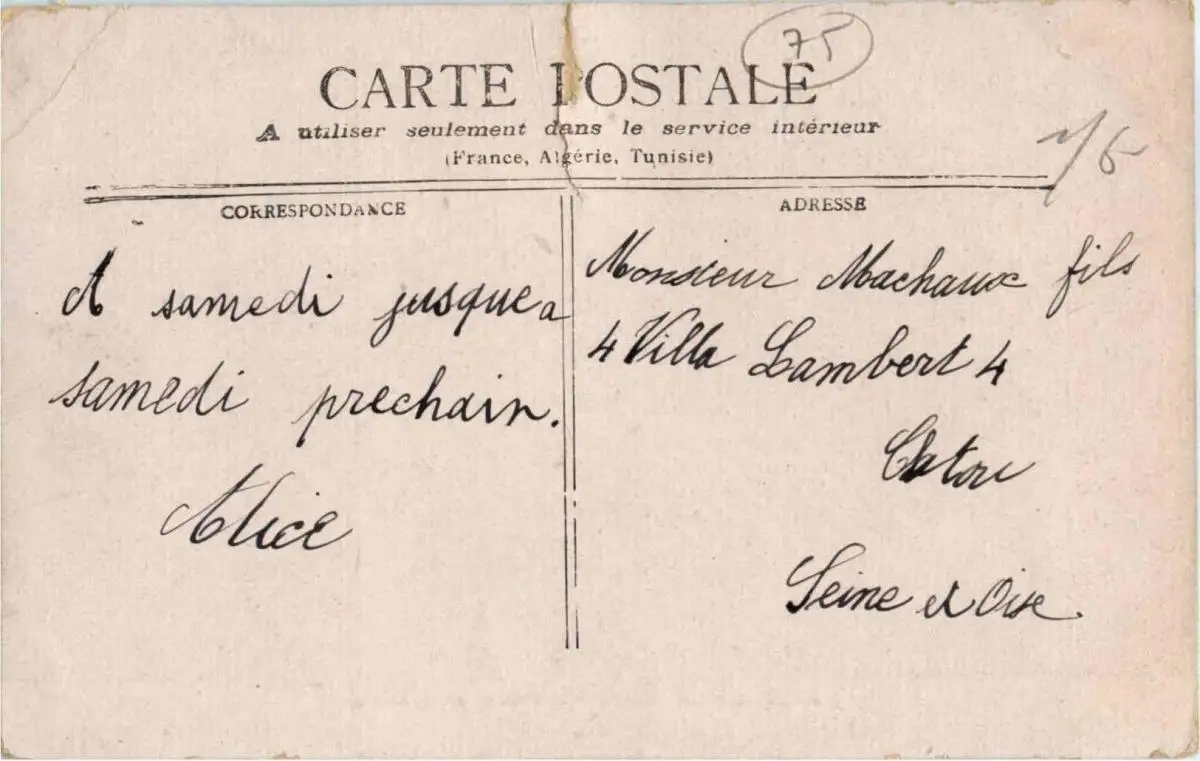 75
CARTE POSTALE
A utiliser seulement dans le service intérieur
(France, Algérie, Tunisie)
CORRESPONDANCE
A samedi jusque a
samedi prechain.
Alice
ADRESSE
Monsieur Machaux fils
4 Villa Lambert 4
Chatou
Seine et Oise.